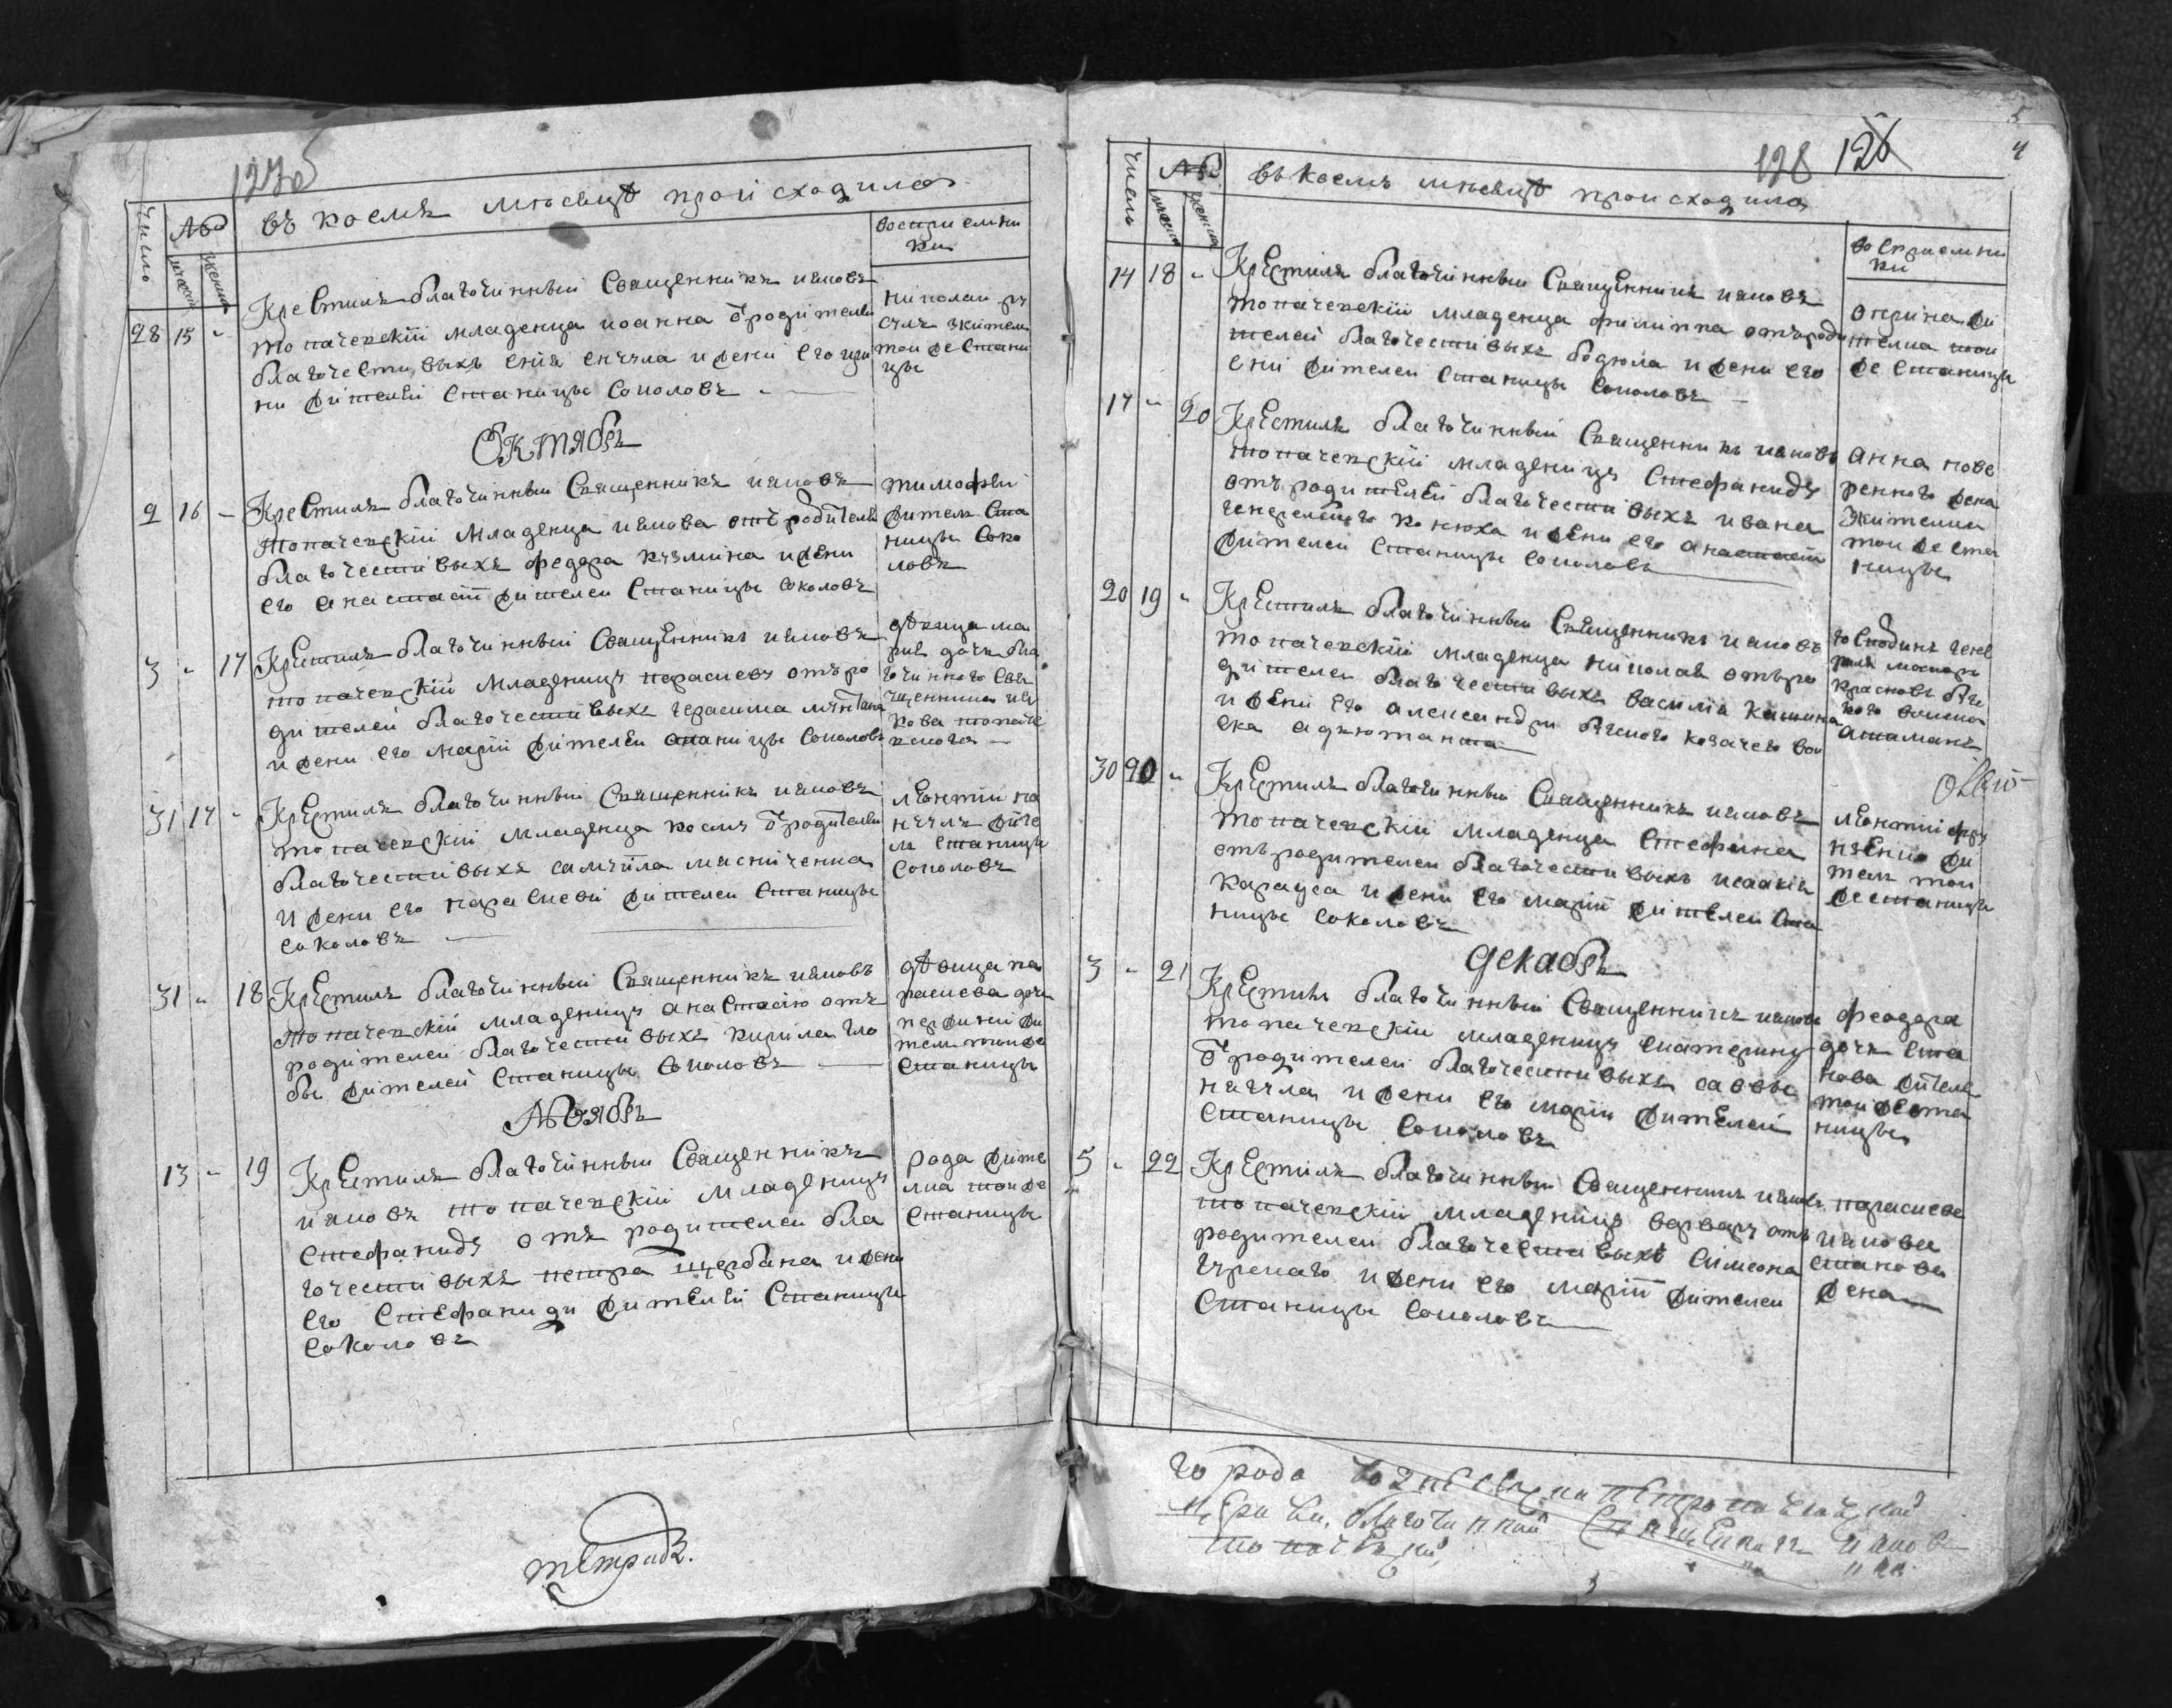 127б
число
№
мужска
женска
въ коемъ мѣсяцѣ происходило
восприемни
ки
28 15 "
Крестилъ благочинный Священникъ иаковъ
топачевскій младенца иоанна ѿродителей
благочестивыхъ
ни жителей Станицы Соколовъ
николай
житель
той же Стани
цы
Октябрь
2 16 –
Крестилъ благочинный Священникъ иаковъ
Топачевскій Младенца иакова отъ родителей
благочестивыхъ федора кузмина и жени
его анастасіи жителей Станицы Соколовъ
тимофей
житель Ста
ницы Соко
ловъ
3 " 17
Крестилъ благочинный Священникъ иаковъ
топачевскій Младеницу парасковью отъ ро
дителей благочестивыхъ герасима
и жени его маріи жителей Станицы Соколовъ
дѣвица ма
рія дочь бла
гочинного Свя
щенника иа
кова топаче
вского
31 17 "
Крестилъ благочинный Священникъ иаковъ
топачевскій младенца косму ѿродителей
благочестивыхъ самуила масниченка
и жени его параскевіи жителей Станицы
Соколовъ
леонтій
жите
ль Станицы
Соколовъ
31 " 18
Крестилъ благочинный Священникъ иаковъ
Топачевскій младеницу анастасію отъ
родителей благочестивыхъ кирила гло
бы жителей Станицы Соколовъ
дѣвица па
раскева дочь
жи
тель той же
Станицы
Ноябрь
13 – 19
Крестилъ благочинный Священникъ
иаковъ топачевскій младеницу
Стефаниду отъ родителей бла
гочестивыхъ петра щербана и жени
его Стефаниди жителей Станицы
Соколовъ
рода жите
лка той же
Станицы
тетрадь.
4
128 126
число
№
мужска
женска
въ коемъ мѣсяцѣ происходило
восприемни
ки
14 18 "
Крестилъ благочинный Священникъ иаковъ
топачевскій младенца филиппа отъ роди
телей благочестивыхъ бодюла и жени его
жителей Станицы Соколовъ
жи
телка той
же Станицы
17 " 20
Крестилъ благочинный Священникъ иаковъ
топачевскій младеницу Стефаниду
отъ родителей благочестивыхъ ивана
конюха и жени его анастасіи
жителей Станицы Соколовъ
анна пове
ренного жена
жителки
той же Ста
ницы
20 19 "
Крестилъ благочинный Священникъ иаковъ
топачевскій младенца николая отъ ро
дителей благочестивыхъ василія кашина
и жени его александри бугского козачего вой
ска адютанта
господинъ гене
ралъ маіоръ
красновъ бугс
кого воиска
атаманъ
30 20 "
Крестилъ благочинный Священникъ иаковъ
топачевскій младенца Стефана
отъ родителей благочестивыхъ исаакія
Карауса и жени его маріи жителей Ста
ницы Соколовъ
леонтій
жи
тель той
же станицы
Декабрь
3 " 21
Крестилъ благочинный Священникъ иаковъ
топачевскій младеницу екатерину
ѿродителей благочестивыхъ саввы
и жени его маріи жителей
Станицы Соколовъ
феодора
дочь Ста
нова жителя
той же ста
ницы
5 " 22
Крестилъ благочинный Священникъ иаковъ
топачевскій младеницу варвару отъ
родителей благочестивыхъ Симеона
и жени его маріи жителей
Станицы Соколовъ
параскева
иакова
станова
жена
города вознесенска
церкви благочинный Священникъ иаковъ
топачевскій